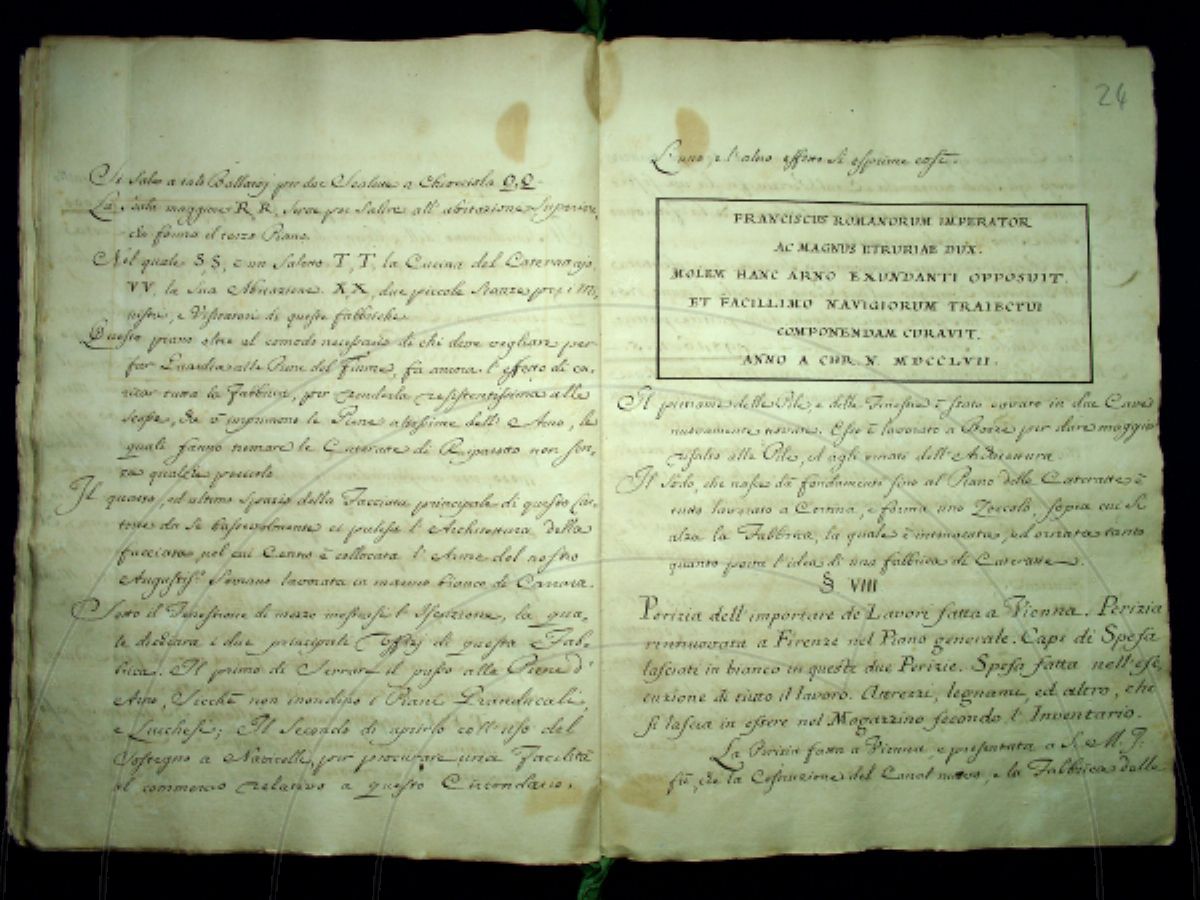 Si Sale a tali Ballatoj per due Scalette a Chiocciola Q, Q.
La Scala maggiore R, R, serve per Salire all' abitazione Superiore,
che forma il terzo Piano.
Nel quale S, S, è un Salotto T, T, la Cucina del Caterattajo,
VV, la Sua Abitazione. X, X, due piccole Stanze per i Mi,
nistri, e Visitatori di queste fabbriche.
Questo piano oltre al comodo necessario di chi deve vegliare per
far Guardia alle Piene del Fiume, fa ancora l' effetto di ca,
ricar tutta la Fabbrica, per renderla resistentissima alle
scosse, che v' imprimono le Piene altissime dell' Arno, le
quali fanno tremare le Cateratte di Ripafratta non sen,
za qualche pericolo.
Il quarto, ed ultimo Spazio della Facciata principale di questo
da se bastevolmente ci palesa l' Architettura della
facciata nel cui Centro è collocata l' Arme del nostro
Augustiss.º Sovrano lavorata in marmo bianco di Carrara.
Sotto il Fenestrone di mezzo inostrasi l' Iscrizione, la qua,
le dichiara i due principali Offizj di questa Fab,
brica. Il primo di Serrare il passo alle Piene d'
Arno, Sicchè non inondino i Piani Granducali,
e Lucchesi; Il Secondo di aprirlo coll' uso del
Sostegno a Navicelli, per procurare una Facilità
al commercio relativo a questo Circondario.
24
L' uno, e l' altro effetto Si esprime così.
FRANCISCUS ROMANORUM IMPERATOR
AC MAGNUS ETRURIAE DUX.
MOLEM HANC ARNO EXUNDANTI OPPOSUIT.
ET FACILLIMO NAVIGIORUM TRAIECTUI
COMPONENDAM CURAVIT.
ANNO A CHR. N. MDCCLVII.
Il pietrame delle Pile, e delle Finestre è stato cavato in due Cave
nuovamente trovate. Esso è lavorato a Bozze per dare maggior
risalto alle Pile, ed agli ornati dell' Architettura.
Il Sodo, che nasce da' fondamenti fino al Piano delle Cateratte è
tutto lavorato a Cortina, e forma uno Zoccolo, sopra cui Si
alza la Fabbrica, la quale è intonacata, ed ornata tanto
quanto porta l' idea di una fabbrica di Cateratte.
§ VIII
Perizia dell' importare de Lavori fatta a Vienna. Perizia
rinnuovata a Firenze nel Piano generale. Capi di Spesa
lasciati in bianco in queste due Perizie. Spesa fatta nell' ese,
cuzione di tutto il lavoro. Attrezzi, legnami, ed altro, che
si lascia in essere nel Magazzino secondo l' Inventario.
La Perizia fatta a Vienna, e presentata a S. M. J.
fù, che la Costruzione del Canal nuovo, e la Fabbrica delle